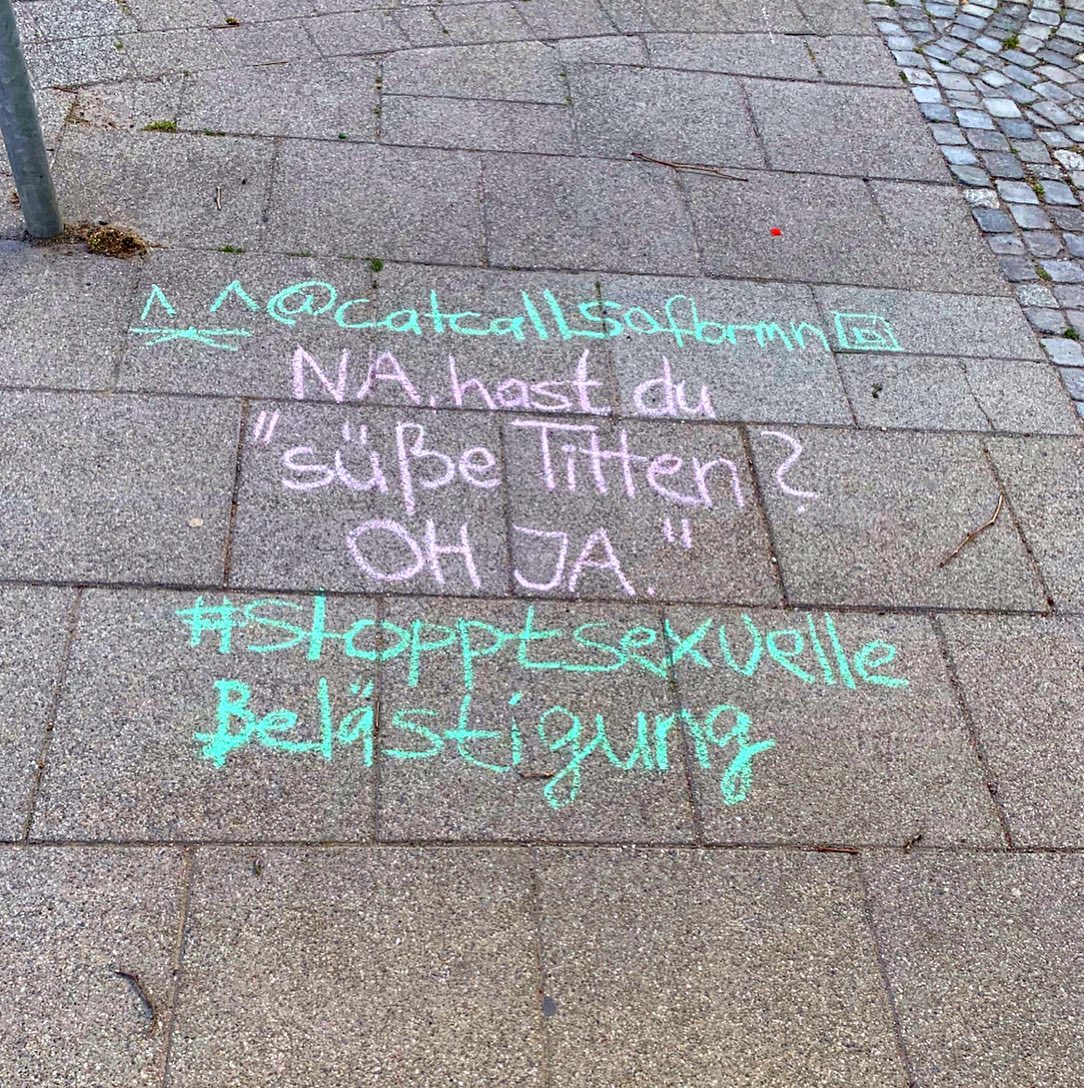 @catcallsofbrmn
NA, hast du
"süße Titten?
OH JA."
#stopptsexuelle
Belästigung